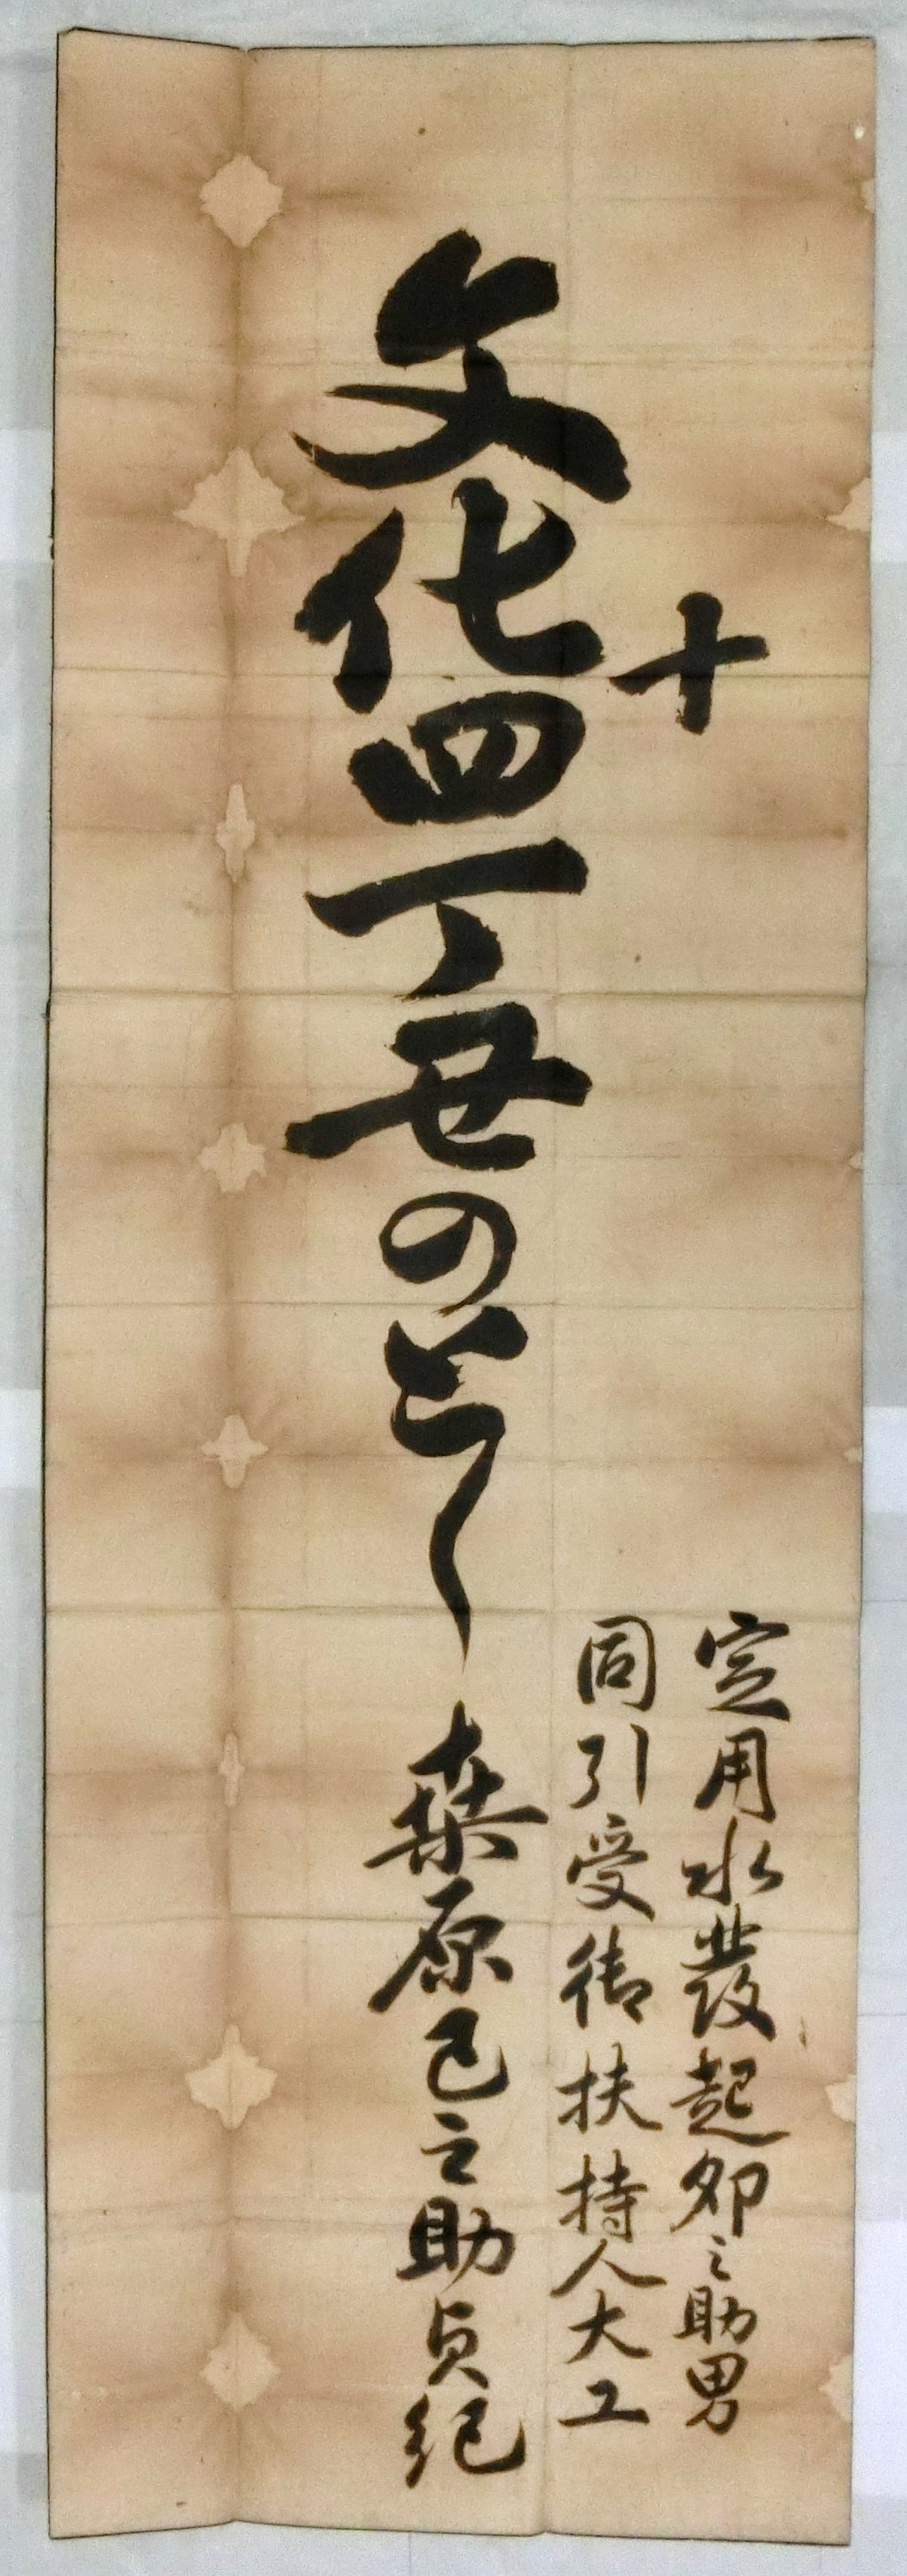 定用水發起卯之助男
同引受御扶持人大工
文化十四丁丑のとし
桒原巳之助貞紀